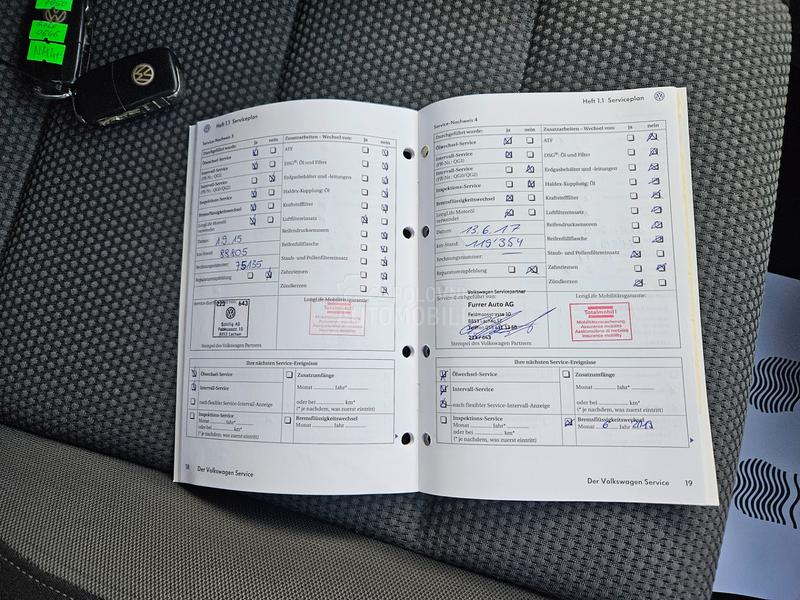 NMht
Heft 1.1 Serviceplan
Service-Nachweis 3
Durchgeführt wurde: ja nein
Ölwechsel-Service
Intervall-Service
(FW-Nr.: QG1)
Intervall-Service
(FW-Nr.: QG0/QG2)
Inspektions-Service
Bremsflüssigkeitswechsel
LongLife Motoröl
verwendet
Datum: 1.9.15
km-Stand: 88805
Rechnungsnummer: 75135
Reparaturempfehlung
Zusatzarbeiten – Wechsel von: ja nein
ATF
DSG®: Öl und Filter
Erdgasbehälter und -leitungen
Haldex-Kupplung: Öl
Kraftstofffilter
Luftfiltereinsatz
Reifendrucksensoren
Reifenfüllflasche
Staub- und Pollenfiltereinsatz
Zahnriemen
Zündkerzen
223 643
Feldmoosstr. 10
8853 Lachen
Stempel des Volkswagen Partners
LongLife Mobilitätsgarantie:
Ihre nächsten Service-Ereignisse
Ölwechsel-Service
Intervall-Service
nach flexibler Service-Intervall-Anzeige
Inspektions-Service
Monat Jahr*
oder bei km*
(* je nachdem, was zuerst eintritt)
Zusatzumfänge
Monat Jahr*
oder bei km*
(* je nachdem, was zuerst eintritt)
Bremsflüssigkeitswechsel
Monat Jahr
18 Der Volkswagen Service
Heft 1.1 Serviceplan
Service-Nachweis 4
Durchgeführt wurde: ja nein
Ölwechsel-Service
Intervall-Service
(FW-Nr.: QG1)
Intervall-Service
(FW-Nr.: QG0/QG2)
Inspektions-Service
Bremsflüssigkeitswechsel
LongLife Motoröl
verwendet
Datum: 13.6.17
km-Stand: 119'354
Rechnungsnummer:
Reparaturempfehlung
Zusatzarbeiten – Wechsel von: ja nein
ATF
DSG®: Öl und Filter
Erdgasbehälter und -leitungen
Haldex-Kupplung: Öl
Kraftstofffilter
Luftfiltereinsatz
Reifendrucksensoren
Reifenfüllflasche
Staub- und Pollenfiltereinsatz
Zahnriemen
Zündkerzen
Volkswagen Servicepartner
Service durchgeführt von:
Furrer Auto AG
Feldmoosstrasse 10
8853 Lachen SZ
Stempel des Volkswagen Partners
LongLife Mobilitätsgarantie:
Totalmobil!
Mobilitätsversicherung
Assurance mobilité
Assicurazione di mobilità
Insurance mobility
Ihre nächsten Service-Ereignisse
Ölwechsel-Service
Intervall-Service
nach flexibler Service-Intervall-Anzeige
Inspektions-Service
Monat Jahr*
oder bei km*
(* je nachdem, was zuerst eintritt)
Zusatzumfänge
Monat Jahr*
oder bei km*
(* je nachdem, was zuerst eintritt)
Bremsflüssigkeitswechsel
Monat 6 Jahr
Der Volkswagen Service 19